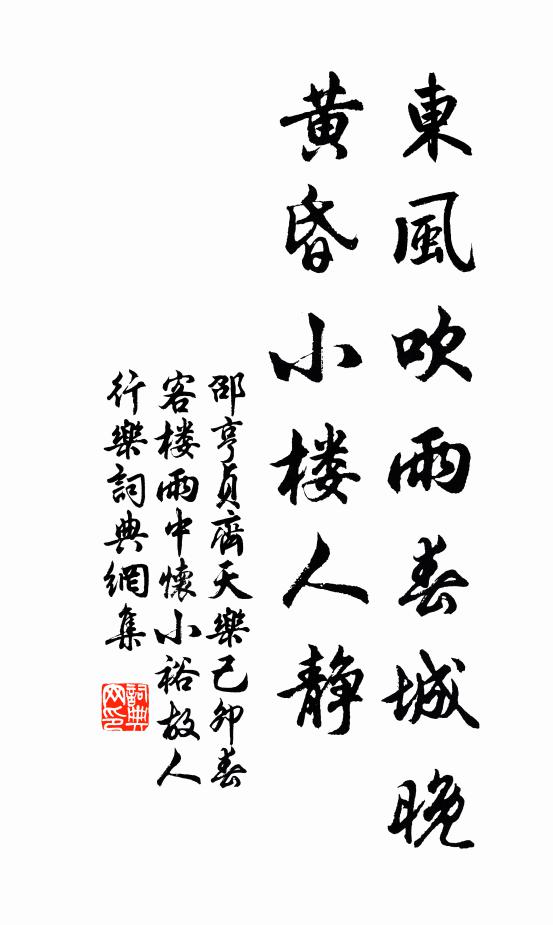 東風吹雨春城晚
黃昏小楼人靜
邵亨貞齊天樂己卯春
客楼雨中懷小裕故人
行樂詞典網集
詞典
网印